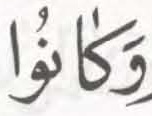 وَكَانُوا